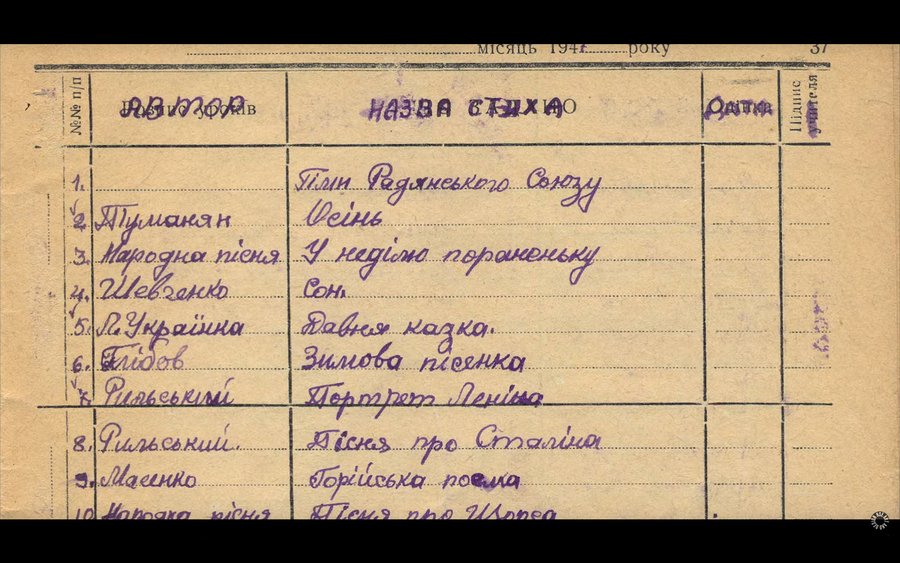 місяць 194 року 37
№№ п/п АВТОР НАЗВА СТИХА Дата Підпис учителя
1. Гімн Радянського Союзу
2. Туманян Осінь
3. Народна пісня У неділю пораненьку
4. Шевченко Сон.
5. Л. Українка Давня казка.
6. Глібов Зимова пісенка
7. Рильський Портрет Леніна
8. Рильський. Пісня про Сталіна
9. Масенко Горійська поема
10 Народна пісня Пісня про Щорса